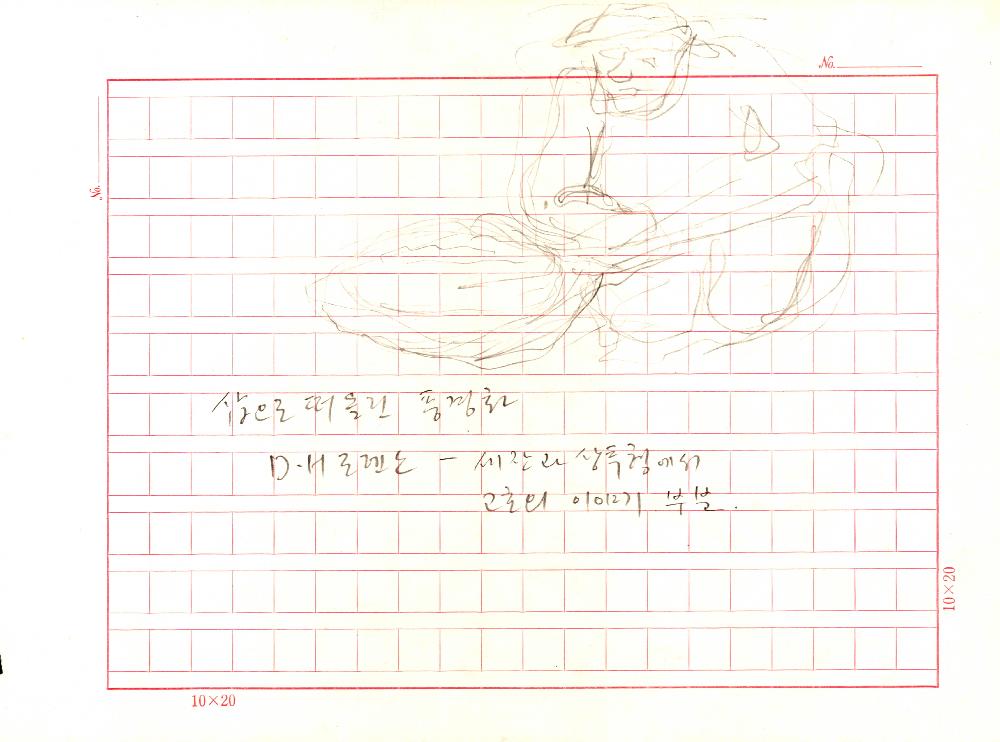 No.
No.
삽으로 떠 올린 풍경화
D·H 로렌스 - 세잔과 상투형에서
고호의 이야기 부분.
10×20
10×20